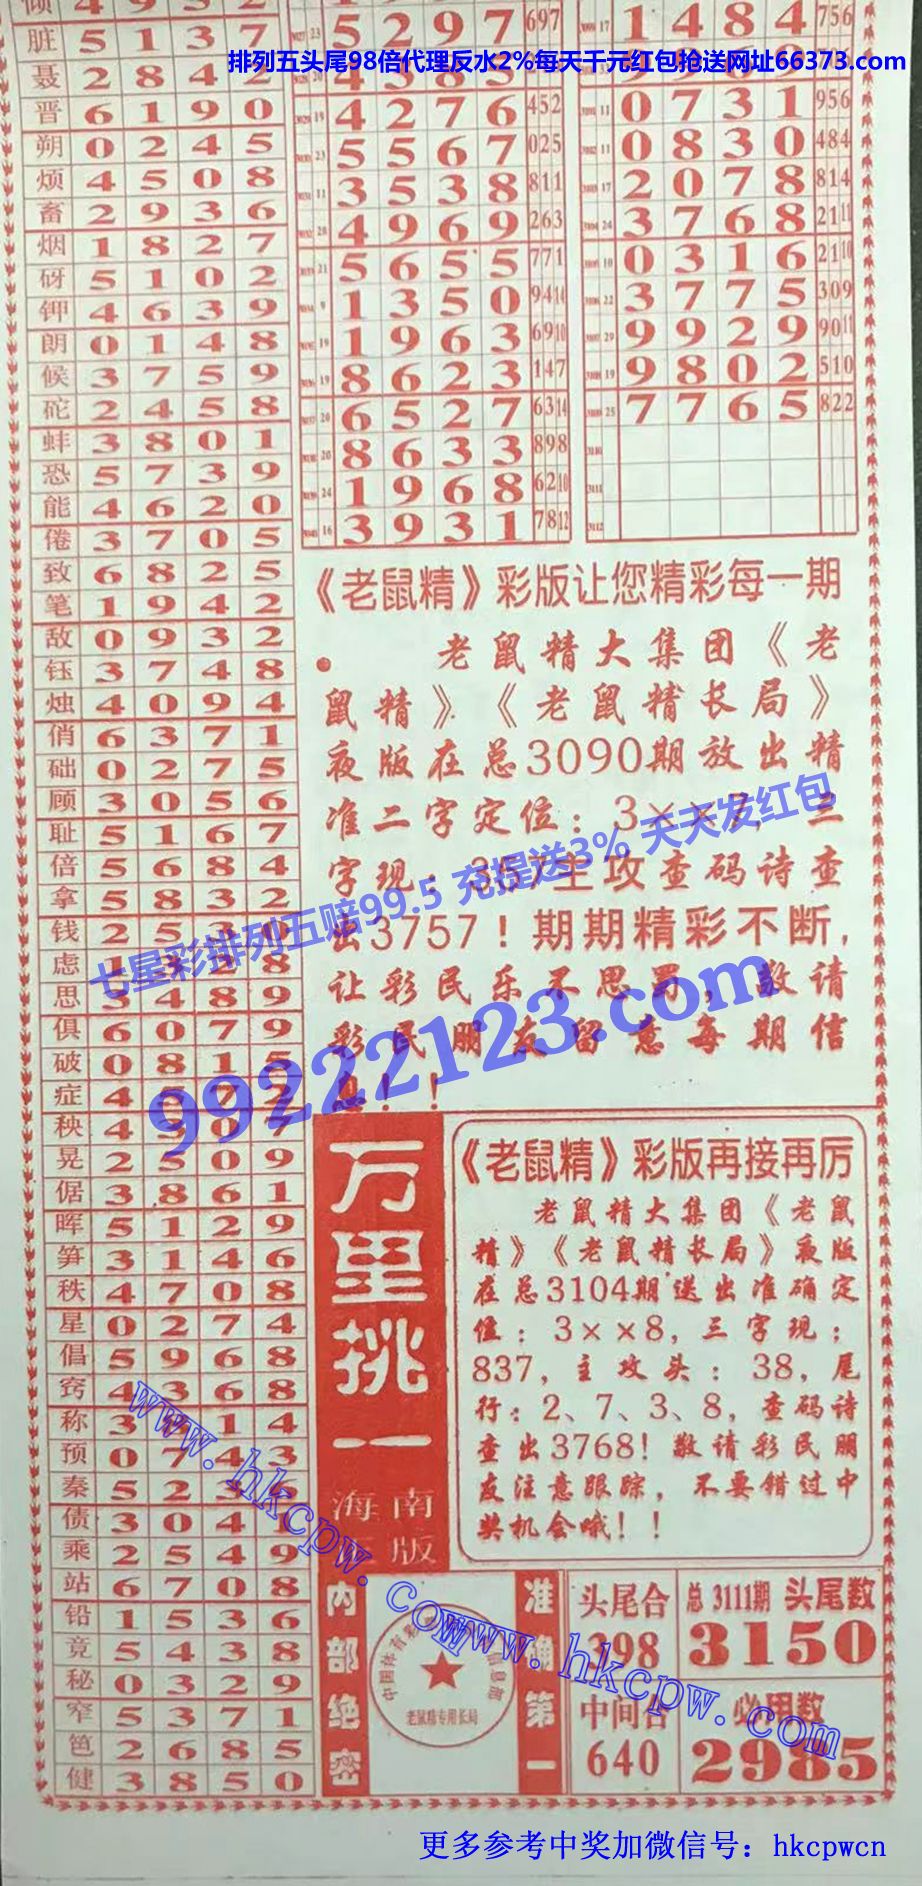 排列五头尾98倍代理反水2%每天千元红包抢送网址66373.com
脏 5 1 3 7
聂 2 8 4 2
晋 6 1 9 0
朔 0 2 4 5
烦 4 5 0 8
畜 2 9 3 6
烟 1 8 2 7
砑 5 1 0 2
钾 4 6 3 9
朗 0 1 4 8
候 3 7 5 9
砣 2 4 5 8
蚌 3 8 0 1
恐 5 7 3 9
能 4 6 2 0
倦 3 7 0 5
致 6 8 2 5
笔 1 9 4 2
敌 0 9 3 2
钰 3 7 4 8
烛 4 0 9 4
俏 6 3 7 1
础 0 2 7 5
顾 3 0 5 6
耻 5 1 6 7
倍 5 6 8 4
拿 5 8 3 2
钱 2 5
虑
思 5 4 8 9
俱 6 0 7 9
破 0 8 1 5
症 4 5 7 2
秧 4 0 7
晃 2 5 0 9
倨 3 8 6 1
晖 5 1 2 9
笋 3 1 4 6
秩 4 7 0 8
星 0 2 7 4
倡 5 9 6 8
窍 4 3 6 8
称 3 1 4
预 0 7 4 3
秦 5 2 3
债 3 0 4
乘 2 5 4 9
站 6 7 0 8
铅 1 5 3 6
竞 5 4 3 8
秘 0 3 2 9
窄 5 3 7 1
笆 2 6 8 5
健 3 8 5 0
23 5 2 9 7 697
19 4 2 7 6 452
23 5 5 6 7 025
11 3 5 3 8 811
28 4 9 6 9 263
21 5 6 5 5 771
9 1 3 5 0 9414
19 1 9 6 3 6910
19 8 6 2 3 147
20 6 5 2 7 6314
20 8 6 3 3 898
24 1 9 6 8 6210
16 3 9 3 1 7812
17 1 4 8 4 756
11 0 7 3 1 956
11 0 8 3 0 484
17 2 0 7 8 814
24 3 7 6 8 2111
10 0 3 1 6 2110
22 3 7 7 5 309
29 9 9 2 9 9011
19 9 8 0 2 510
25 7 7 6 5 822
3110
3111
3112
《老鼠精》彩版让您精彩每一期
老鼠精大集团《老
鼠精》《老鼠精长局》
夜版在总3090期放出精
准二字定位：3××7，三
字现：357主攻查码诗查
出3757！期期精彩不断，
让彩民乐不思蜀，敬请
彩民朋友留意每期信
息！！
七星彩排列五赔99.5 充提送3% 天天发红包
99222123.com
万里挑一
海南
正版
《老鼠精》彩版再接再厉
老鼠精大集团《老鼠
精》《老鼠精长局》夜版
在总3104期送出准确定
位：3××8，三字现；
837，主攻头：38，尾
行：2、7、3、8，查码诗
查出3768！敬请彩民朋
友注意跟踪，不要错过中
奖机会哦！！
内部绝密
老鼠精专用长局
准确第一
头尾合
398
中间合
640
总 3111期 头尾数
3150
必用数
2985
www.hkcpw.com
www.hkcpw.com
更多参考中奖加微信号：hkcpwcn